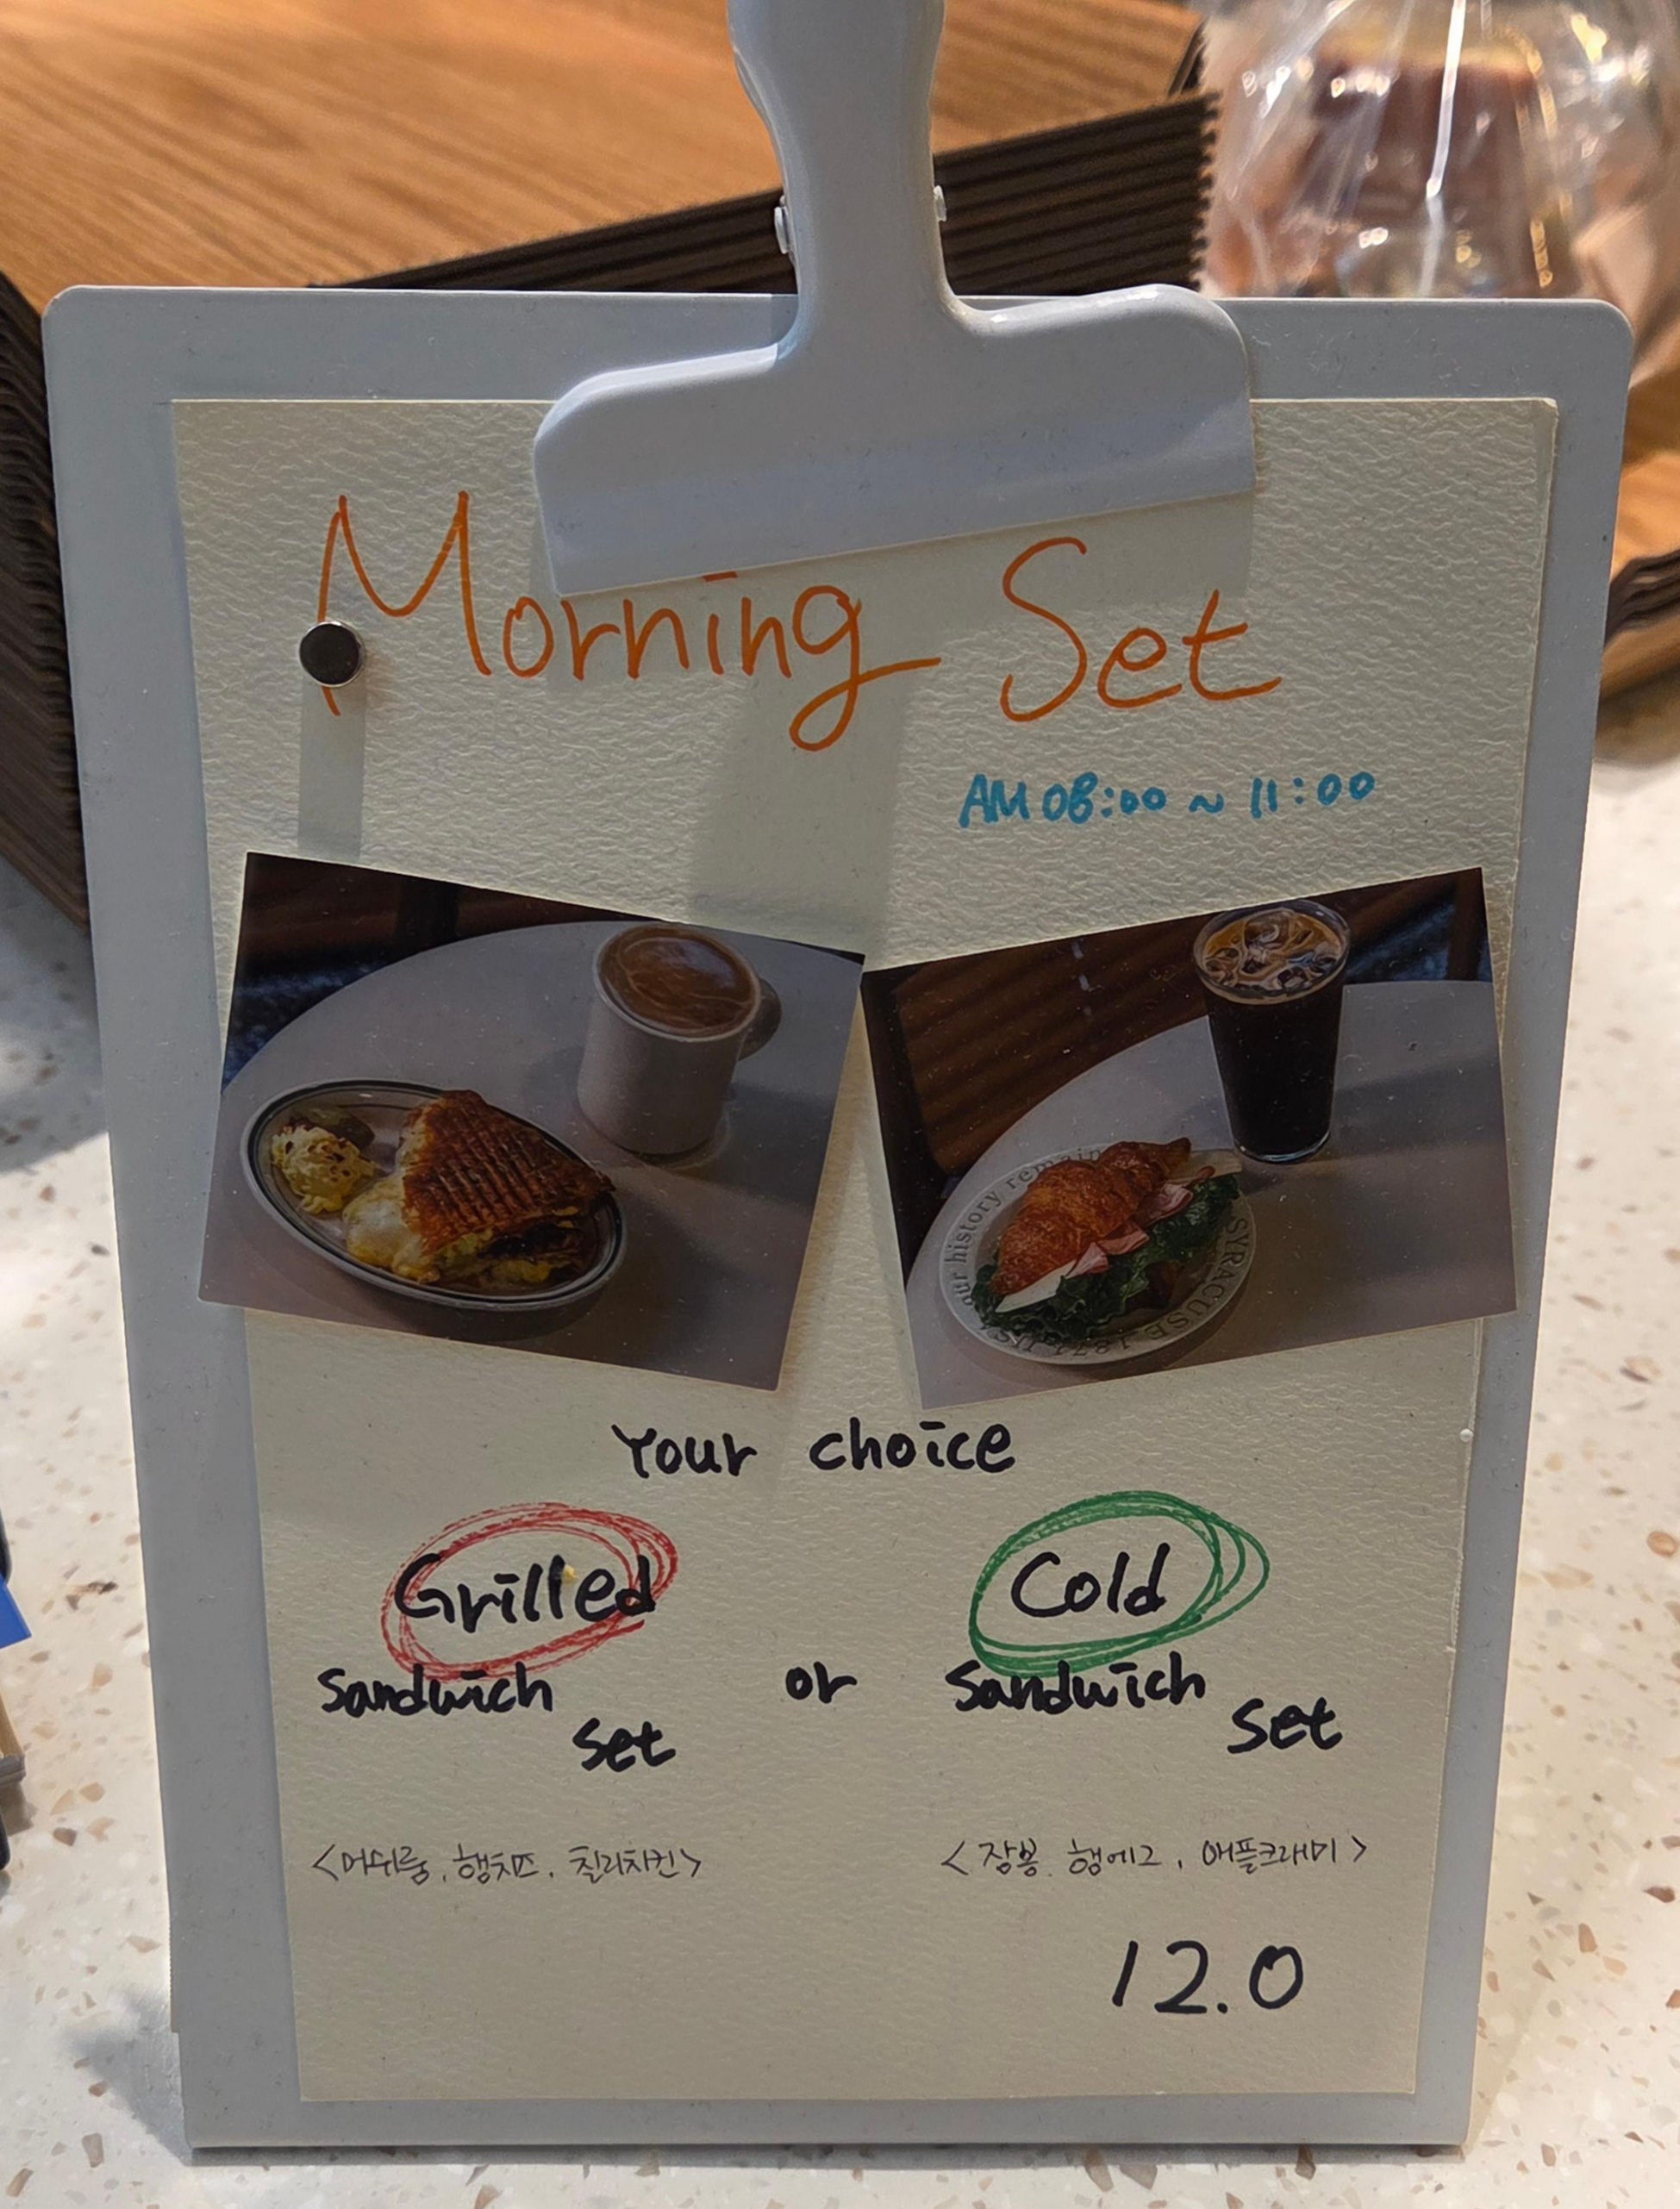 Morning Set
AM 08:00 ~ 11:00
our history remain
SYRACUSE 1871
Your choice
Grilled
Sandwich
Set
or
Cold
Sandwich
Set
<머쉬룸, 햄치즈, 칠리치킨>
<잠봉, 햄에그, 애플크래미>
12.0